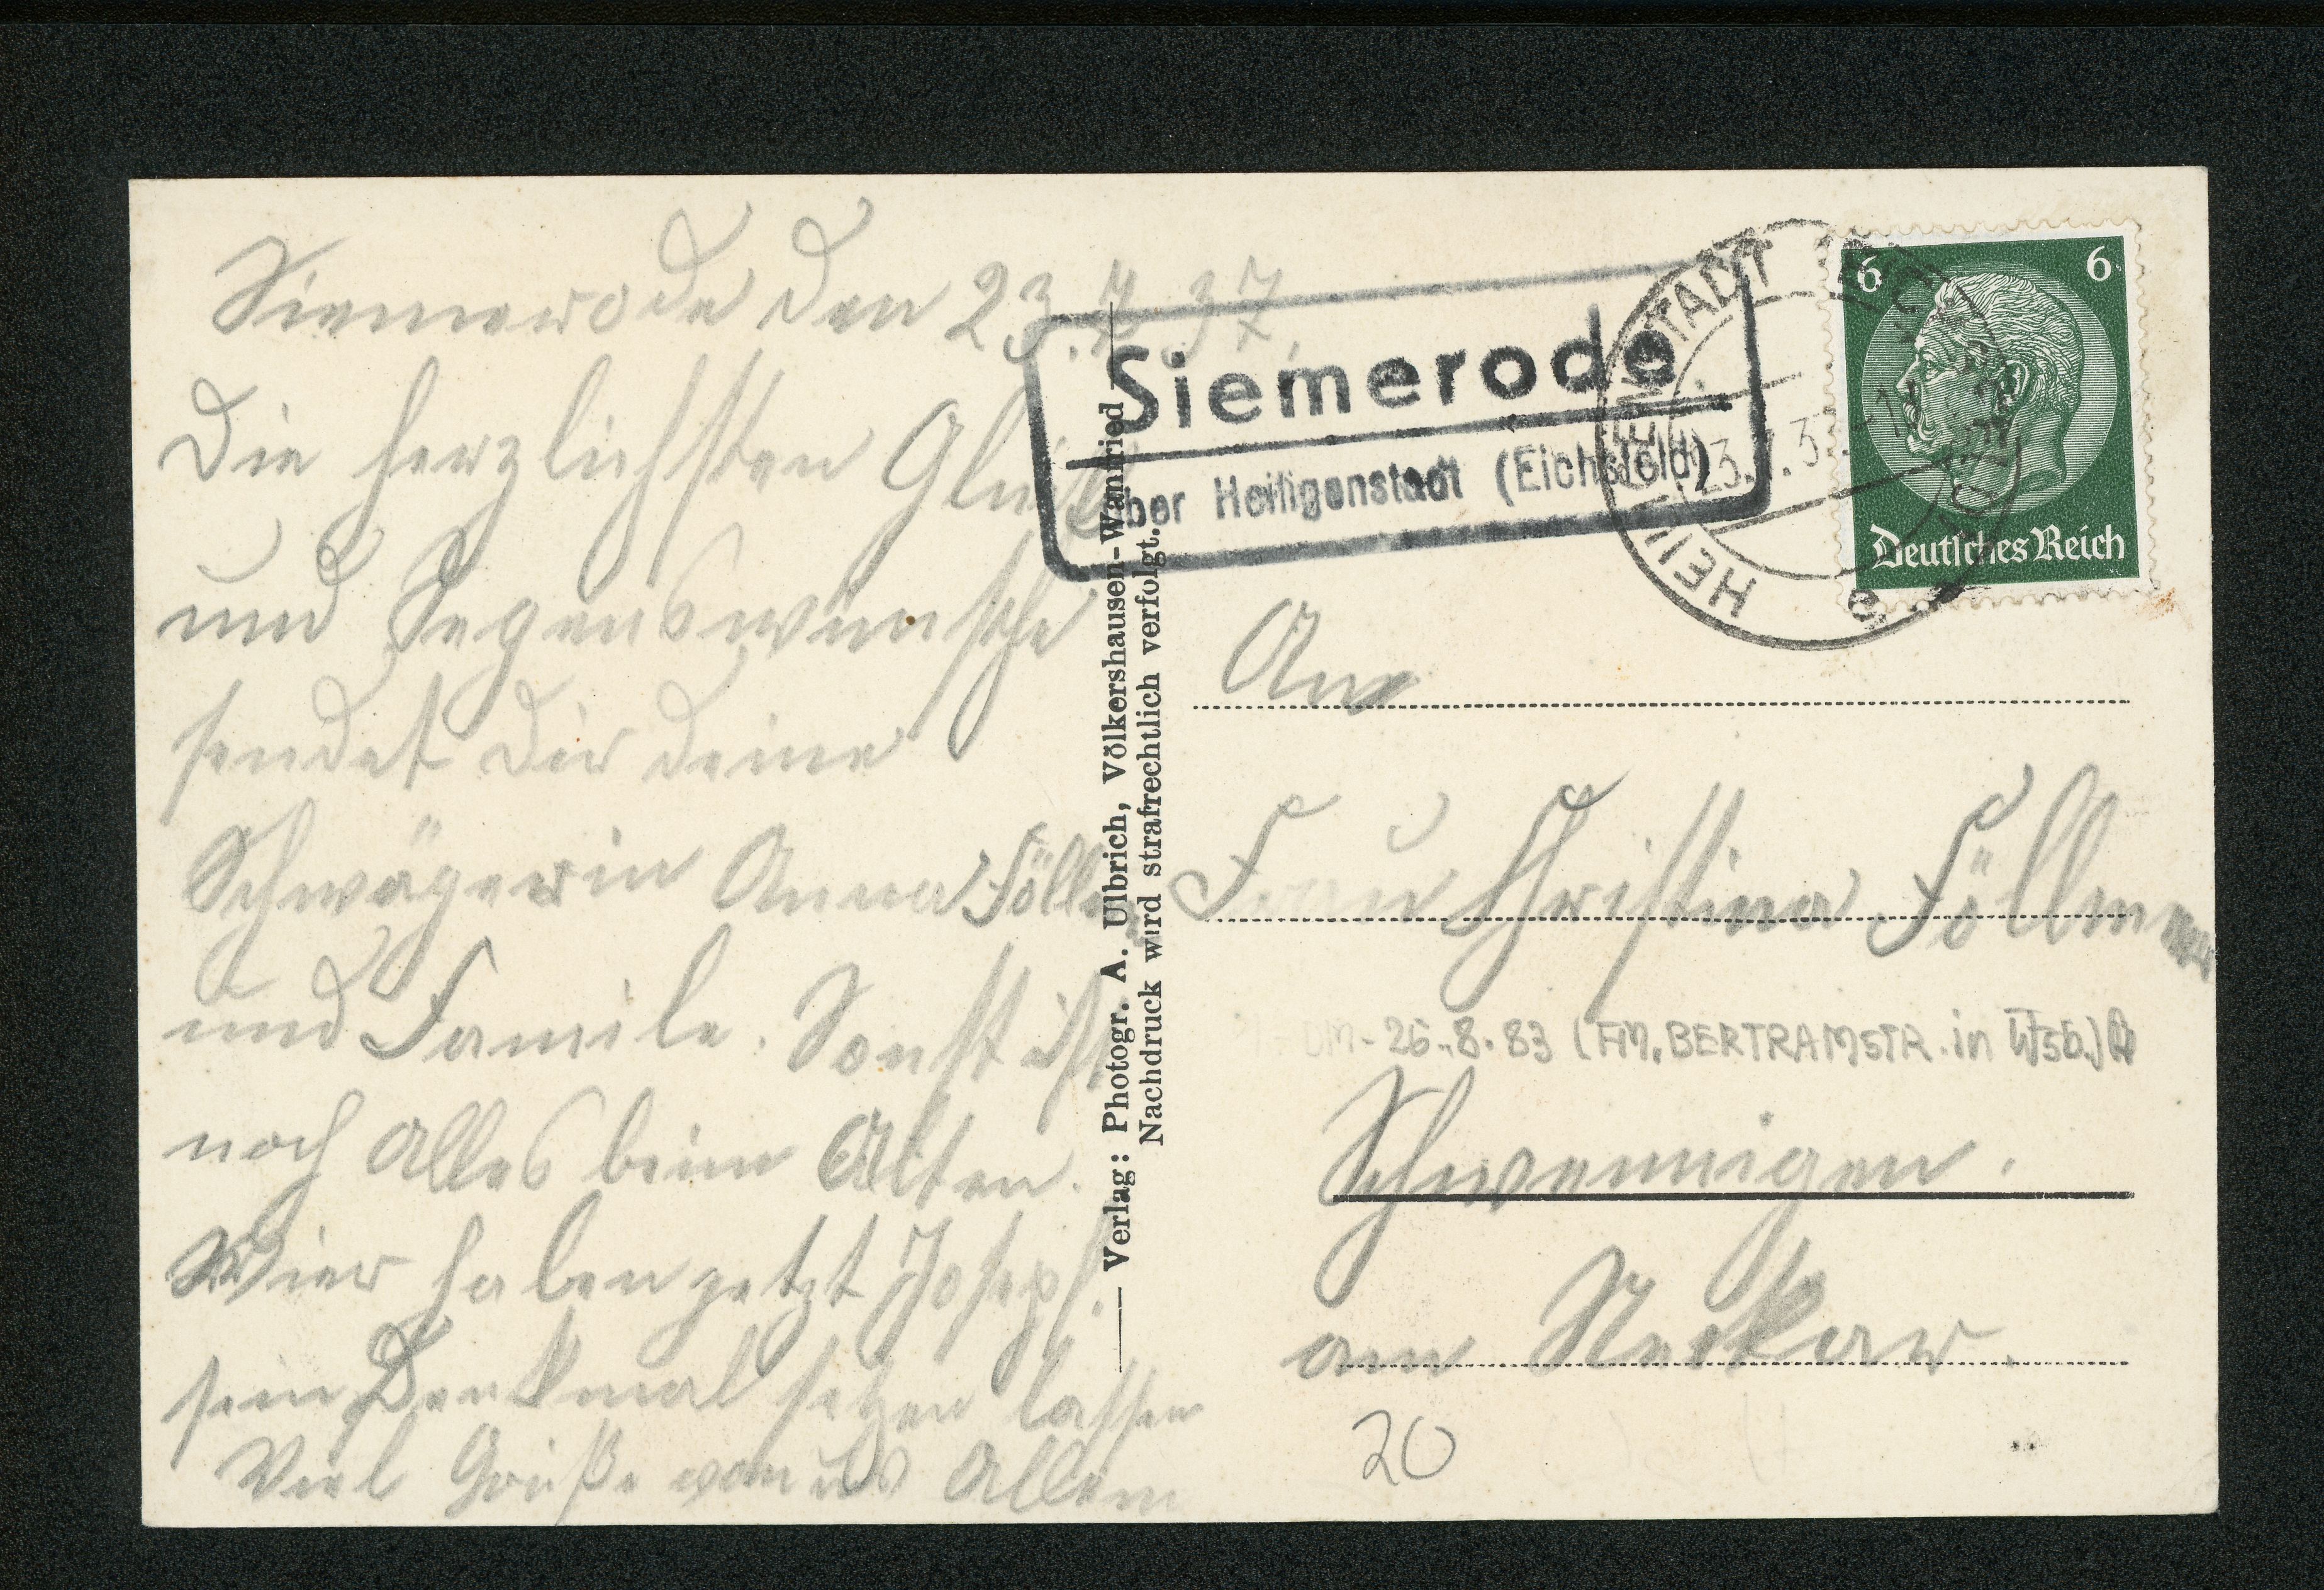 Siemerode den 23.7.37.
Die herzlichsten Glück
und Segenswünsche
sendet dir deine
Schwägerin Anna Föllm
und Familie. Sonst ist
noch Alles beim Alten.
Wier haben jetzt Joseph.
sein Denkmal setzen lassen
Viel Grüße von uns Allem
Verlag: Photogr. A. Ulbrich, Völkershausen-Wanfried
Nachdruck wird strafrechtlich verfolgt.
Siemerode
über Heiligenstadt (Eichsfeld)
HEILIGENSTADT EICHSFELD
23.7.3
e
6 6
Deutsches Reich
An
Frau Christina Föllmer
DM- 26.8.83 (FM. BERTRAMSTR. in Wsb.)
Schwennigen.
am Neckar.
20